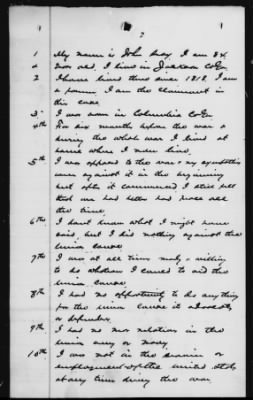 2
1 My name is John May. I am 84
years old. I live in Jackson Co Ga.
2 I have lived there since 1818. I am
a farmer. I am the claimant in
this case.
3 I was born in Columbia Co Ga.
4th For six months before the war &
during the whole war I lived at
same where I now live.
5th I was opposed to the war & my
were against it in the beginning
but after it commenced I still felt
that we had better had peace all
the time.
6th I dont know what I might have
said, but I did nothing against the
union cause
7th I was at all times ready & willing
to do whatever I could to aid the
union cause
8th I had no opportunity to do any thing
for the union cause it
or
9th I had no near relatives in the
union army or navy.
10th I was not in the service or
employment of the united states
at any time during the war.